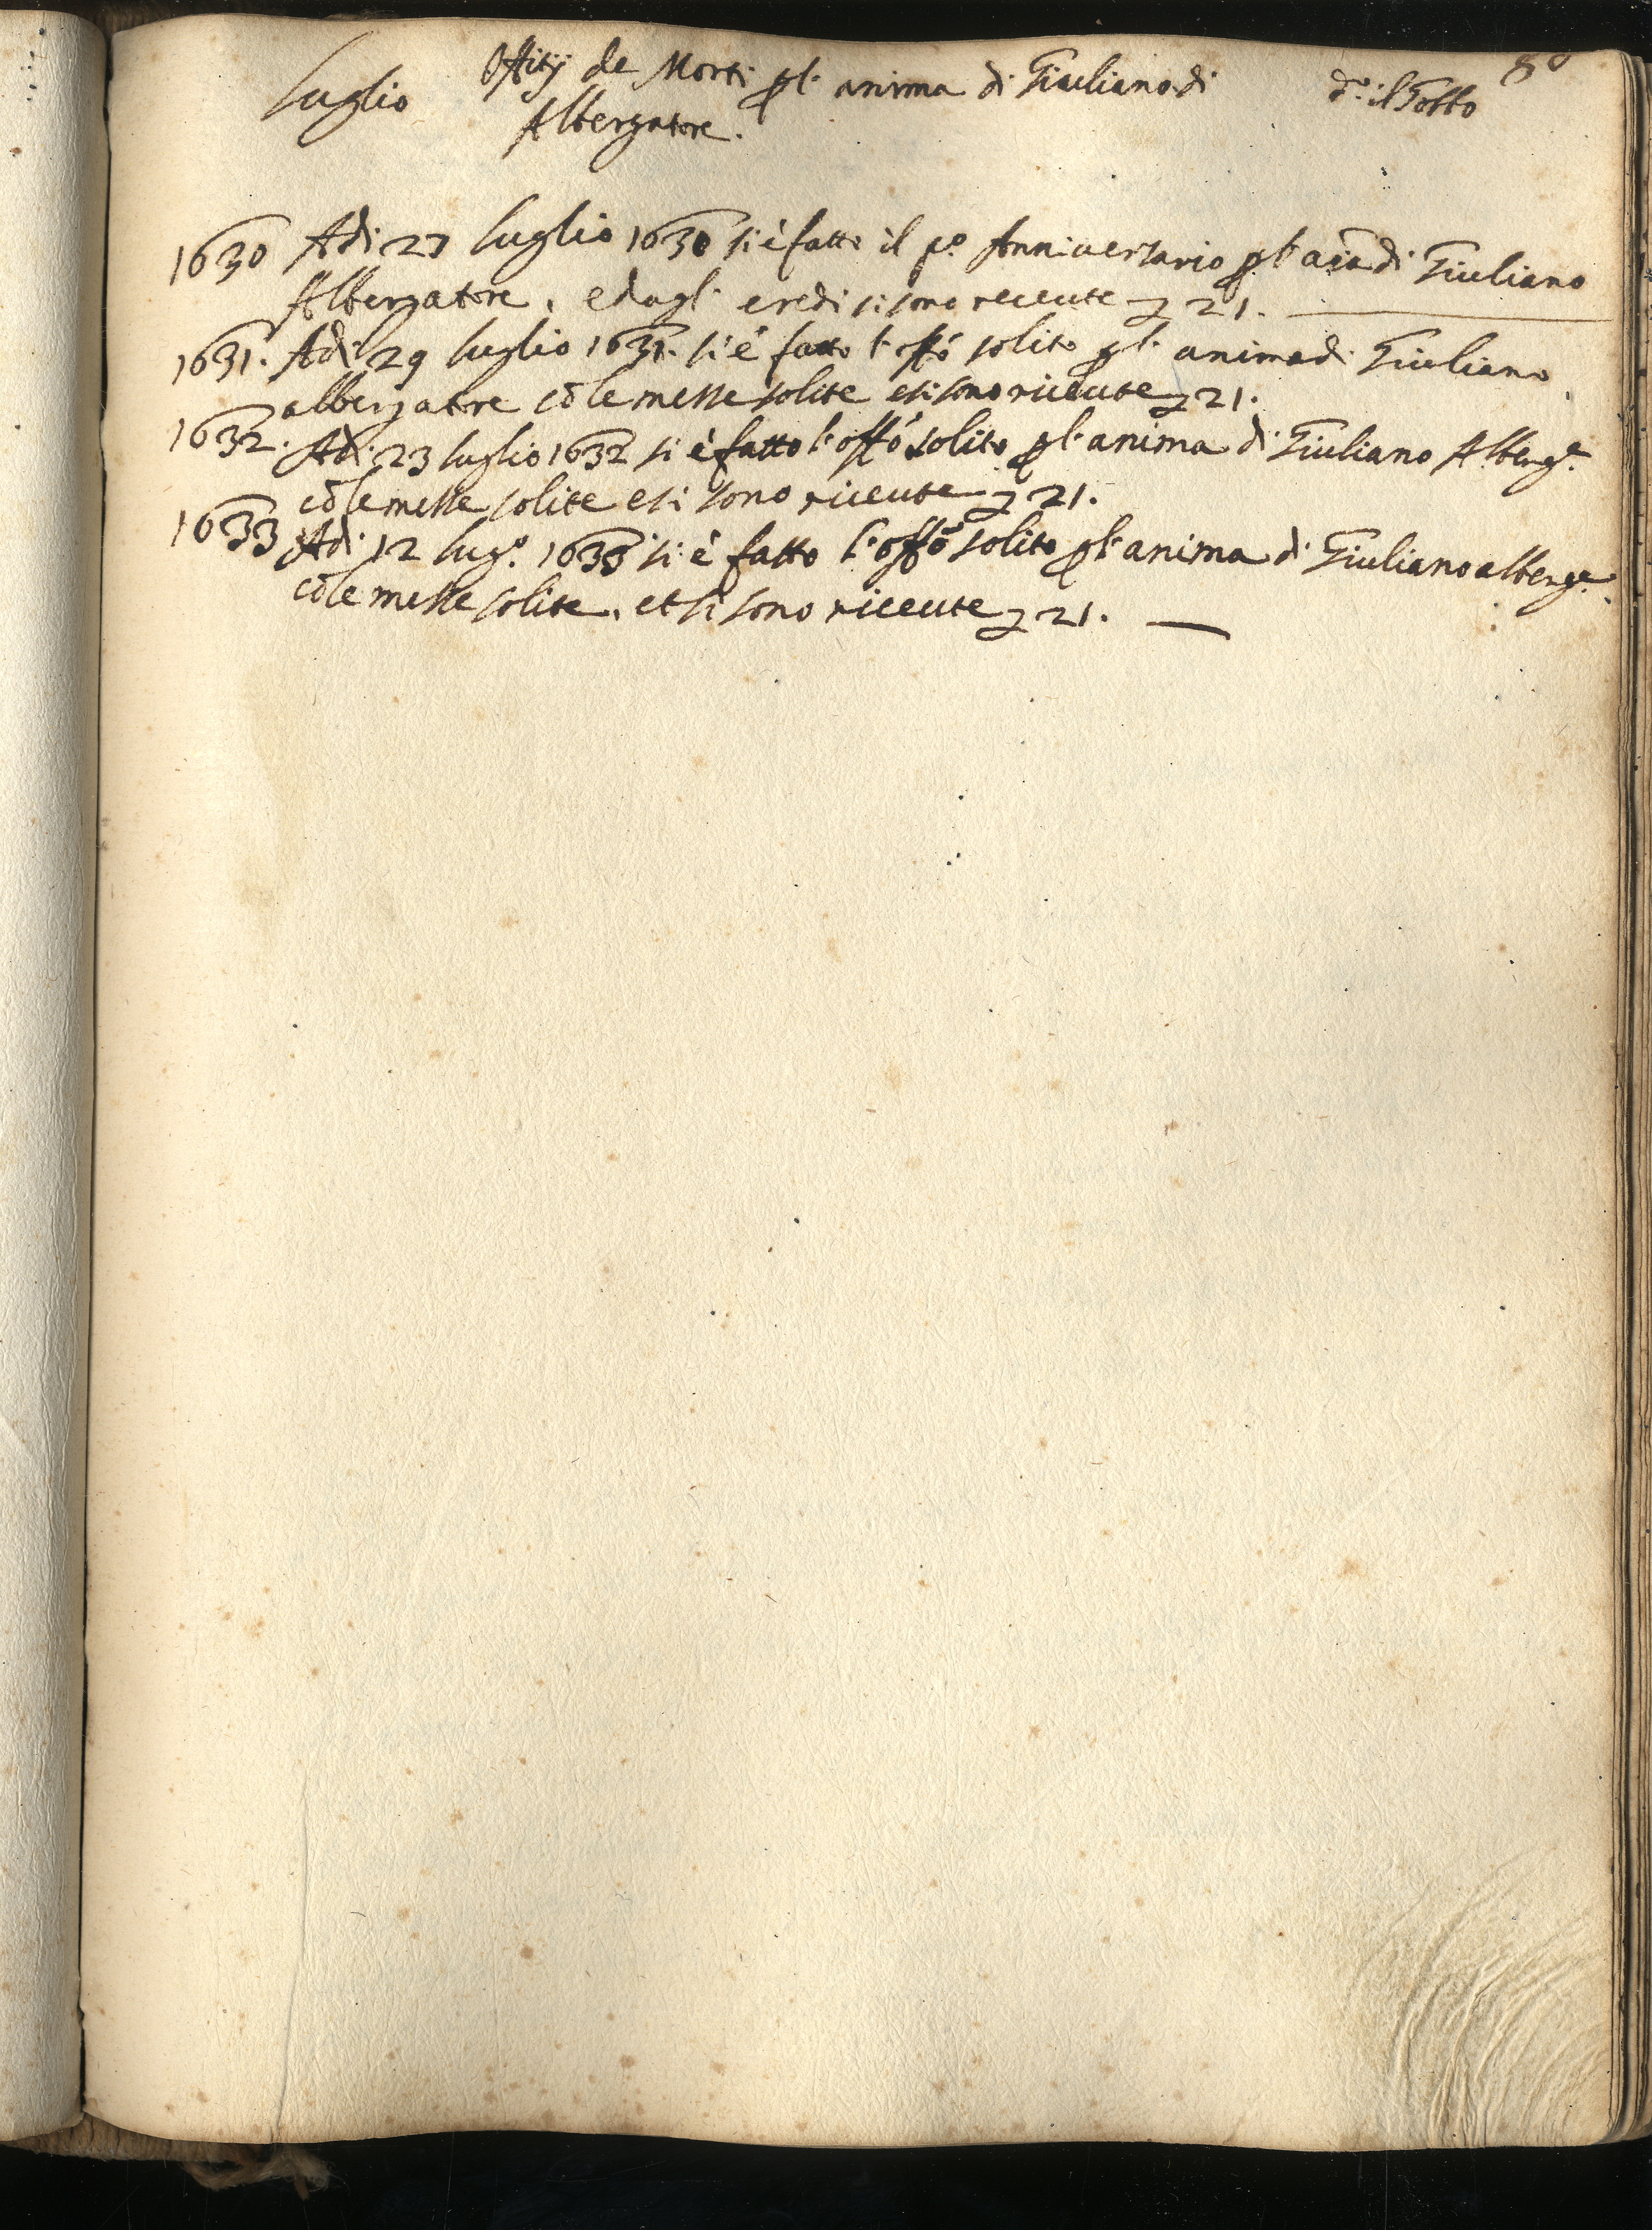 80
luglio Offitij de Morti p l' anima di Giuliano di d.º il Gobbo
Albergatore.
1630 Adi 27 luglio 1630 si è fatto il p.º Anniversario p l' aĩa di Giuliano
Albergatore, e dagl' eredi si sono receute ʒ 21.
1631. Adi 29 luglio 1631. si è fatto l' offõ solito p l' anima di Giuliano
albergatore cõ le messe solite e si sono riceute ʒ 21.
1632. Adi 23 luglio 1632 si è fatto l' offõ solito p l' anima di Giuliano Alberg.e
cõ le messe solite e si sono riceute ʒ 21.
1633 Adi 12 lug.º 1633 si è fatto l' offõ solito p l' anima di Giuliano alberg.e
cõ le messe solite, et si sono riceute ʒ 21.